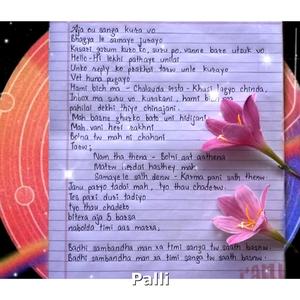 Aja ou sanga kura vo
Bhagya le samaye jurayo
Kasari garum kuro ko, suru po vanne bare utsuk vo
Hello-Hi lekhi pathaye unilai
Unko reply ko prakhai tarw unle kurayo
Vet huna pugayo
Hami bich ma - Chalauda insta - Khusi lagyo chinda,
Inbox ma suru vo kurakani, hami bich ma
pahilai dekhi thiye chinajani.
Mah basne gharko bato uni hidijani
Mah vani heri rakhni
Bolna tw mah ni chahani
Tarw;
Nam tha thena - Bolni aat aathena
Matrw irsdai hashey mah
Samaye le sath denw - Karma pani sath thenw.
Janu paryo tadai mah, tyo thau chaderw.
Tes pani dubi tadiyo
tyo thau chadeko
bitera aja 5 barsa
nabolda timi aas marxa,
Badhi sambandha man xa timi sanga tw saath basnw.
Badhi sambandha man xa timi sanga tw saath basnw.
Palli